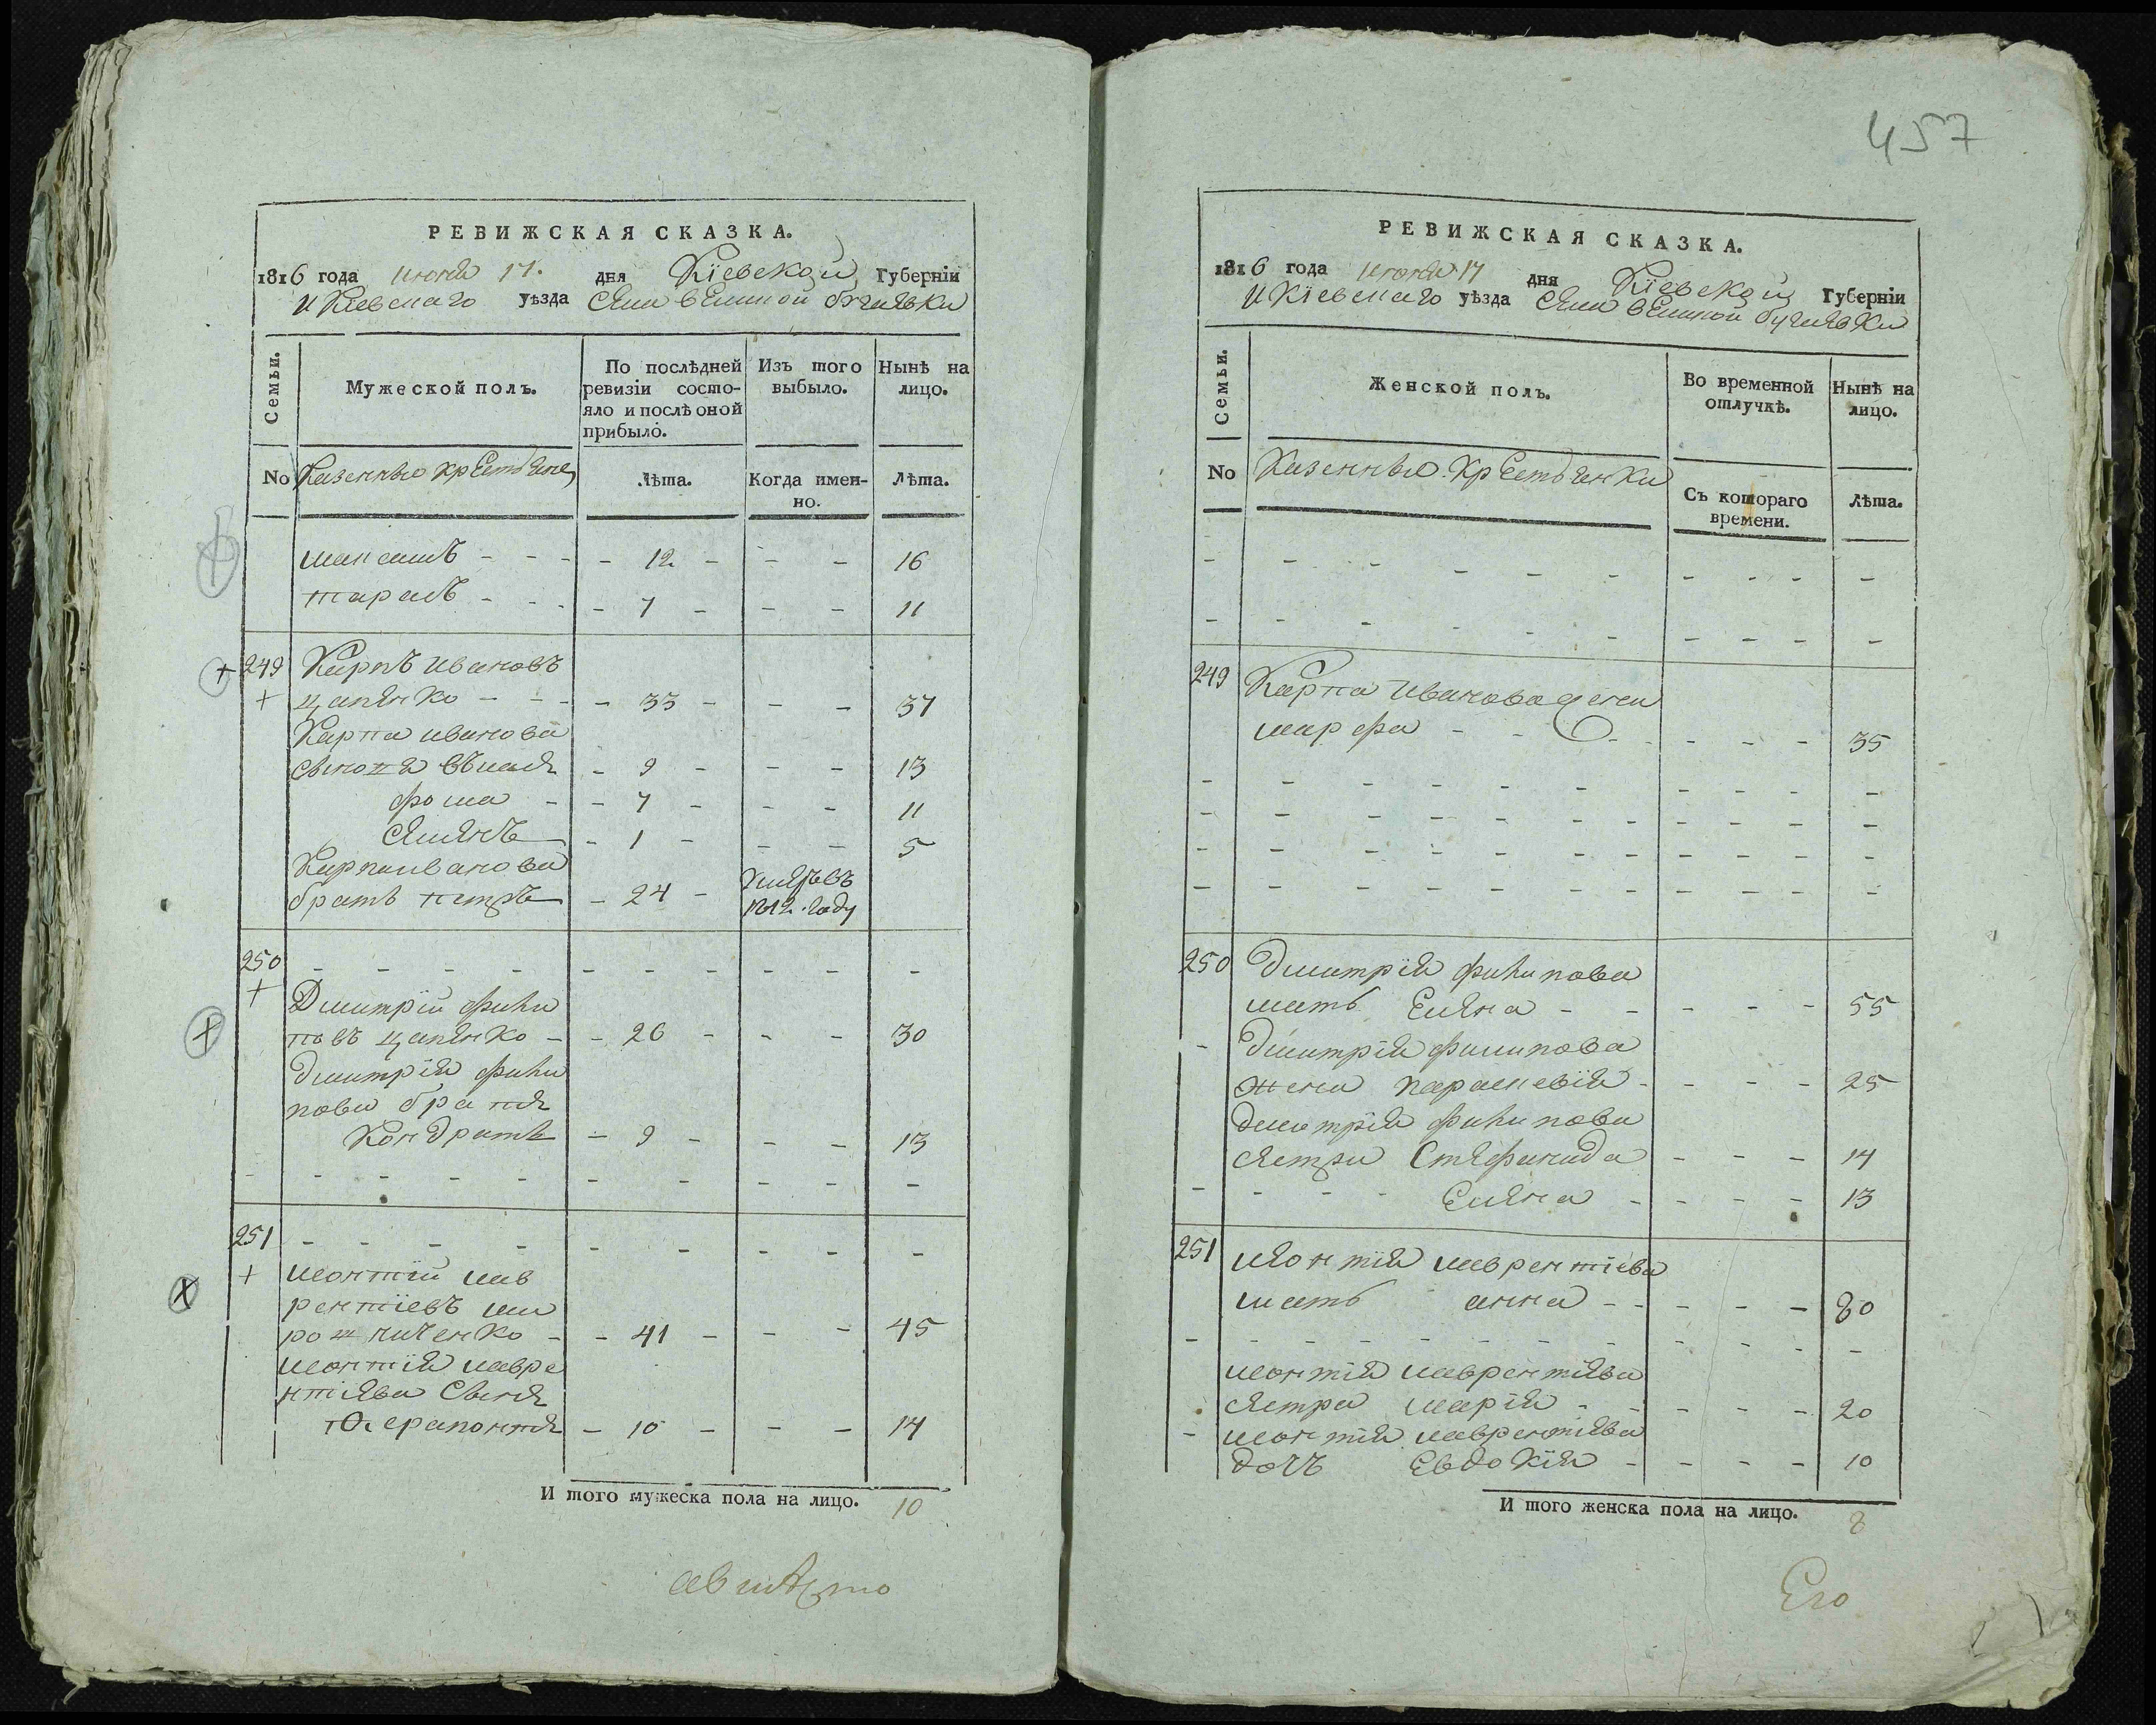 457
РЕВИЖСКАЯ СКАЗКА.
1816 года июня 17. дня Кіевской Губерніи
и Кіевскаго уѣзда Села великой бугаевки
Семьи.
Мужеской полъ.
По послѣдней ревизіи состо-
яло и послѣ оной
прибыло.
Изъ того
выбыло.
Нынѣ на
лицо.
No
Казенные крестьяне
Лѣта.
Когда имен-
но.
Лѣта.
максимъ - - - - 12 - - - 16
тарасъ - - - - 7 - - - 11
249 Карпъ Ивановъ
цапенко - - - - 33 - - - 37
Карпа иванова
сыновя - 9 - - - 13
фома - - 7 - - - 11
семенъ - 1 - - - 5
Карпа иванова
братъ петръ - 24 - умеръ въ
1812 году
250 - - - - - - - - - -
Дмитрій фили
повъ цапенко - - 26 - - - 30
дмитрія фили
пова братя
Кондратъ - 9 - - - 13
- - - - - - - - - - -
251 - - - - - - - - -
леонтій лав
рентіевъ ми
рошниченко - - 41 - - - 45
леонтія лавре
нтіева сыня
Ѳерапонтя - 10 - - - 14
И того мужеска пола на лицо. 10
РЕВИЖСКАЯ СКАЗКА.
1816 года июня 17 дня Кіевской Губерніи
и Кіевскаго уѣзда Села великой бугаевки
Семьи.
Женской полъ.
Во временной
отлучкѣ.
Нынѣ на
лицо.
No
Казенные крестьянки
Съ котораго
времени.
Лѣта.
249 Карпа Иванова жена
марфа - - - - - - 35
250 Дмитрія филипова
мать Елена - - - - - 55
дмитрія филипова
жена параскевія - - - - 25
дмитрія филипова
сестри Стефанида - - - 14
Елена - - - - 13
251 леонтія лаврентіева
мать анна - - - - - 80
леонтія лаврентіева
сестра марія - - - - - 20
леонтія лаврентіева
дочъ Евдокія - - - - 10
И того женска пола на лицо. 8
Его